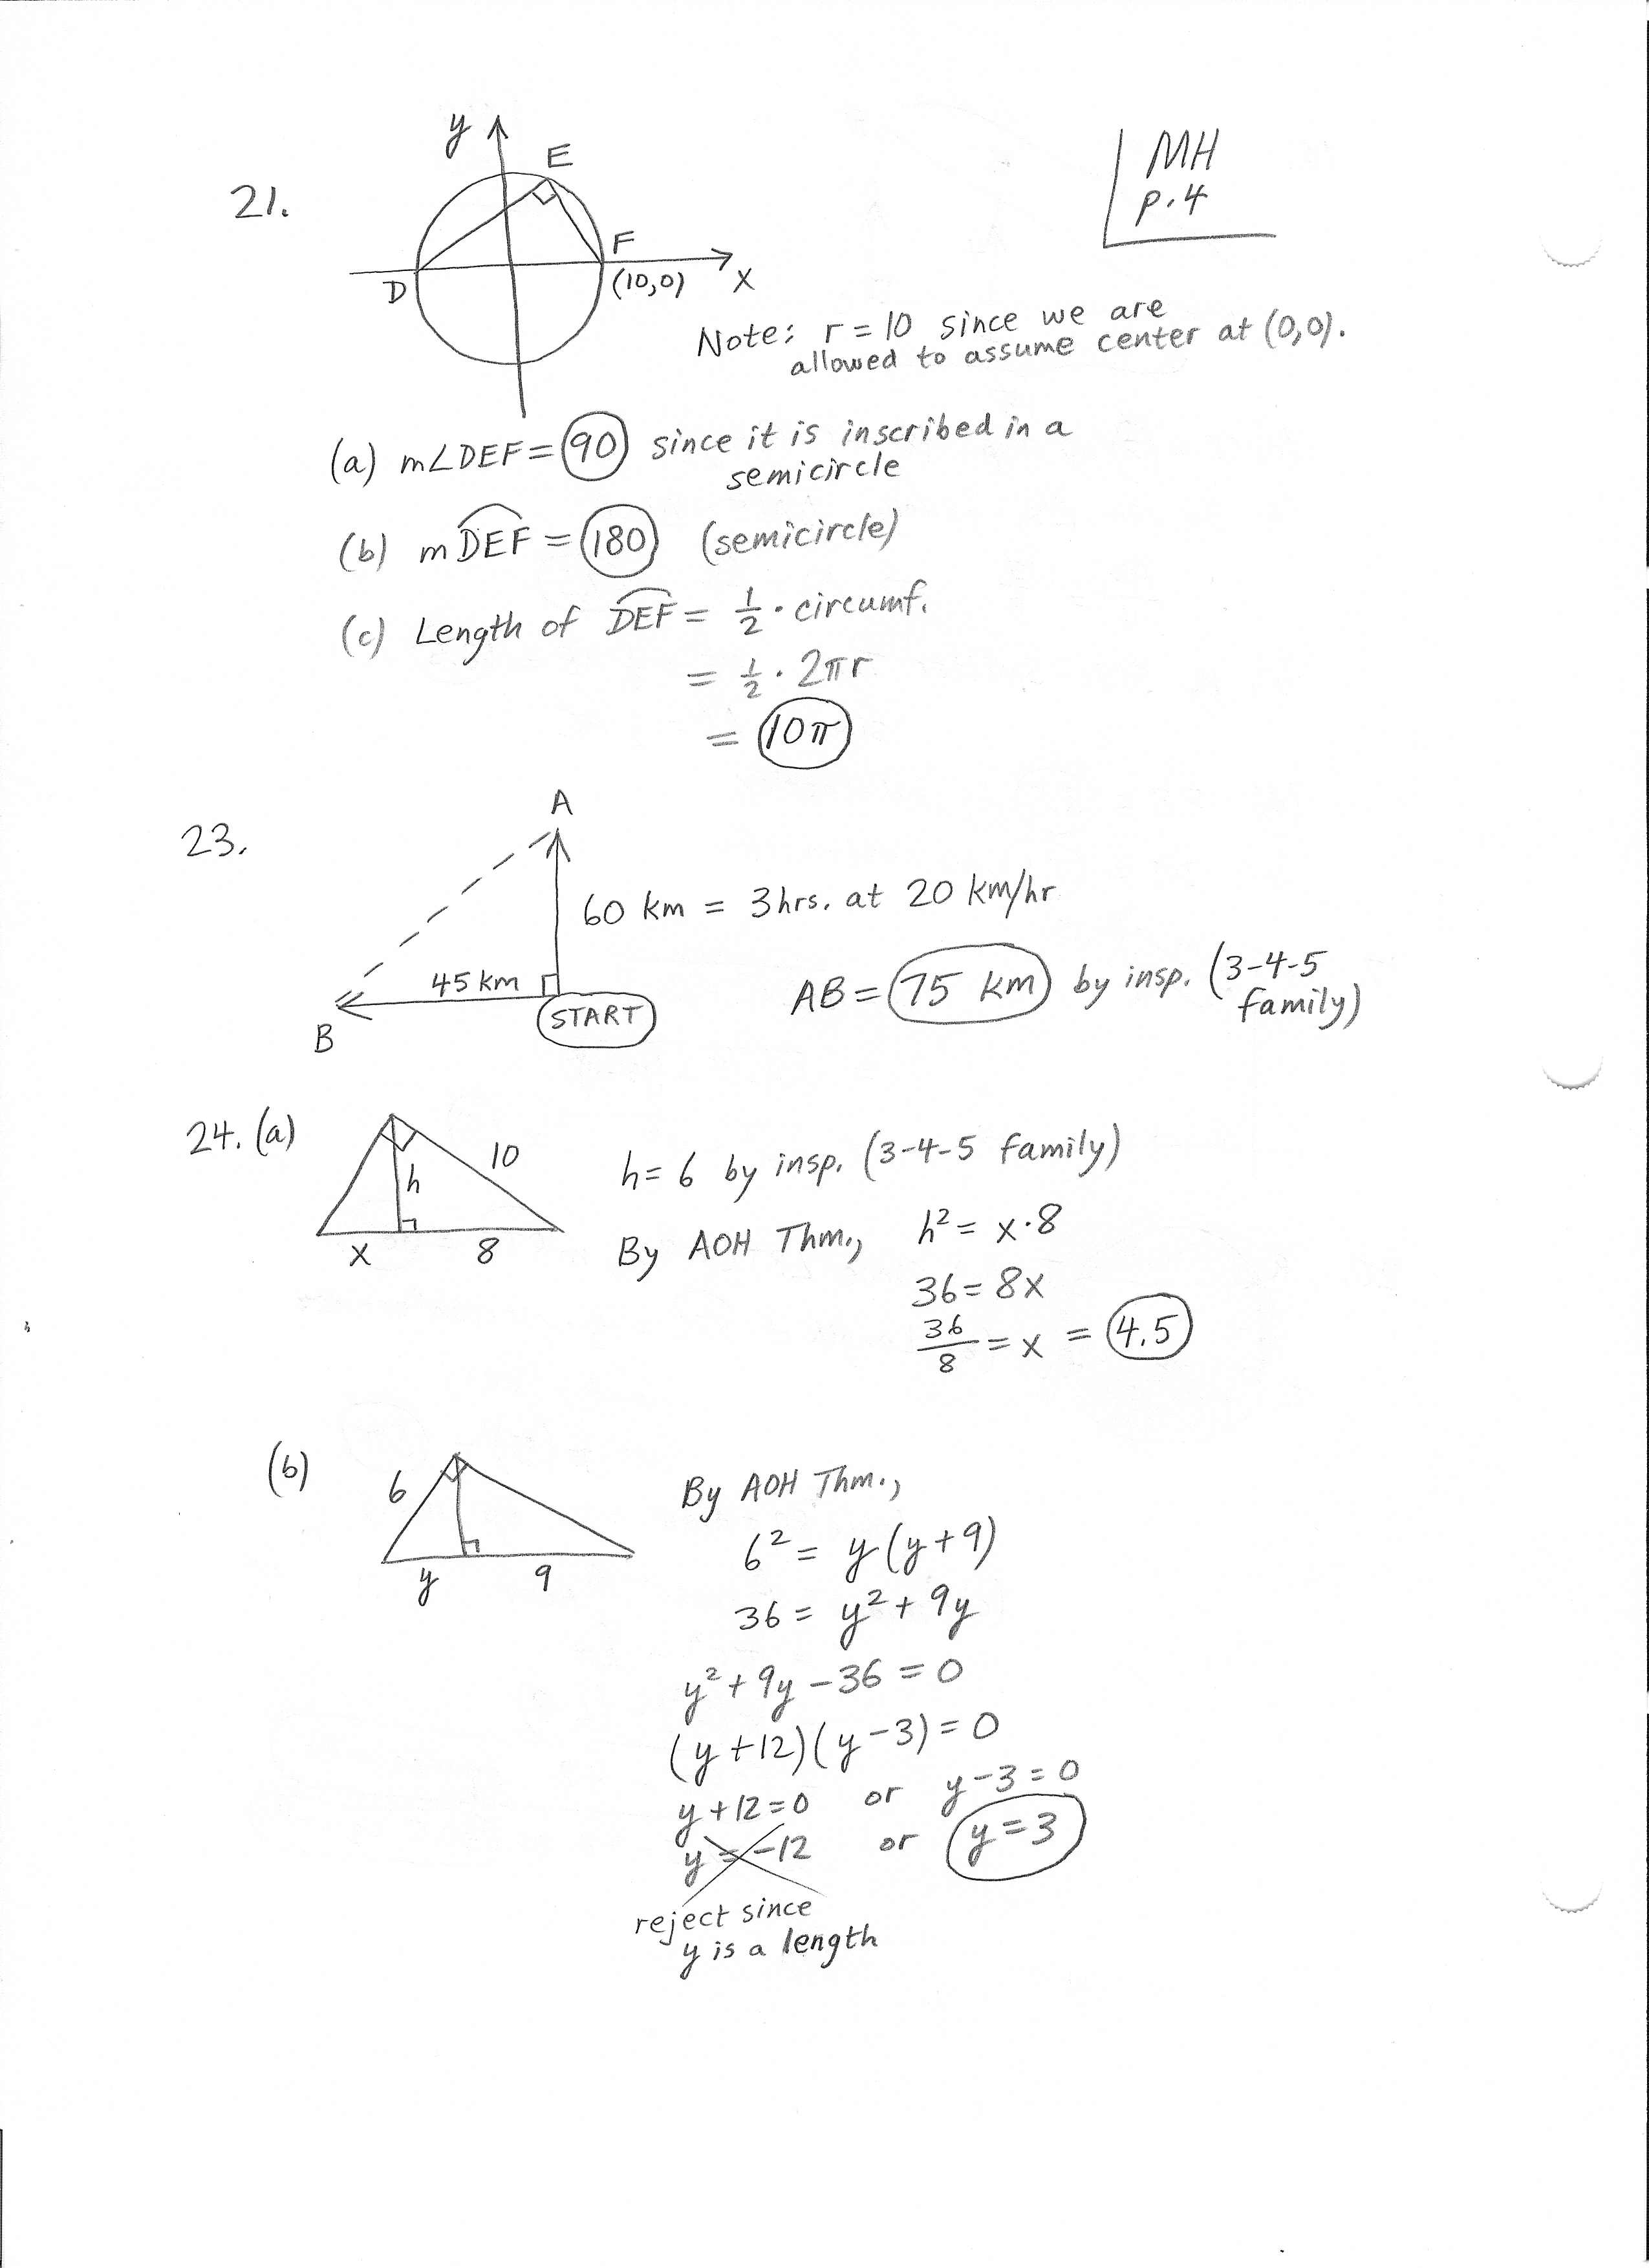 MH
p.4
21.
y
E
F
D
(10,0)
x
Note: r = 10 since we are
allowed to assume center at (0,0).
(a) m∠DEF = 90 since it is inscribed in a
semicircle
(b) mDEF = 180 (semicircle)
(c) Length of DEF = 1/2 · circumf.
= 1/2 · 2πr
= 10π
23.
A
60 km = 3hrs. at 20 km/hr
45 km
START
B
AB = 75 km by insp. (3-4-5
family)
24. (a)
10
h
x
8
h = 6 by insp. (3-4-5 family)
By AOH Thm., h² = x·8
36 = 8x
36/8 = x = 4.5
(b)
6
y
9
By AOH Thm.,
6² = y(y+9)
36 = y² + 9y
y² + 9y - 36 = 0
(y+12)(y-3) = 0
y+12=0 or y-3=0
y=-12 or y=3
reject since
y is a length